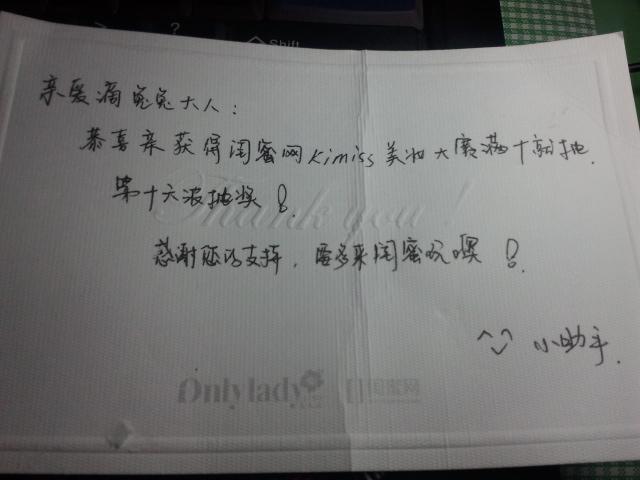 Shift
亲爱滴兔兔大人：
恭喜亲获得闺蜜网Kimiss美妆大赛满十就抽.
第十六波抽奖！
Thank you!
感谢您的支持，要多来闺蜜玩噢！
^_^ 小助手.
Onlylady 闺蜜网